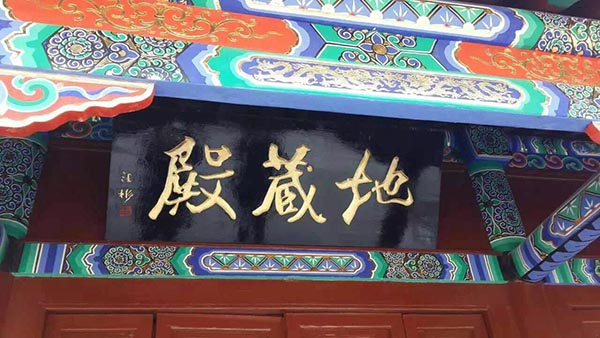 地藏殿